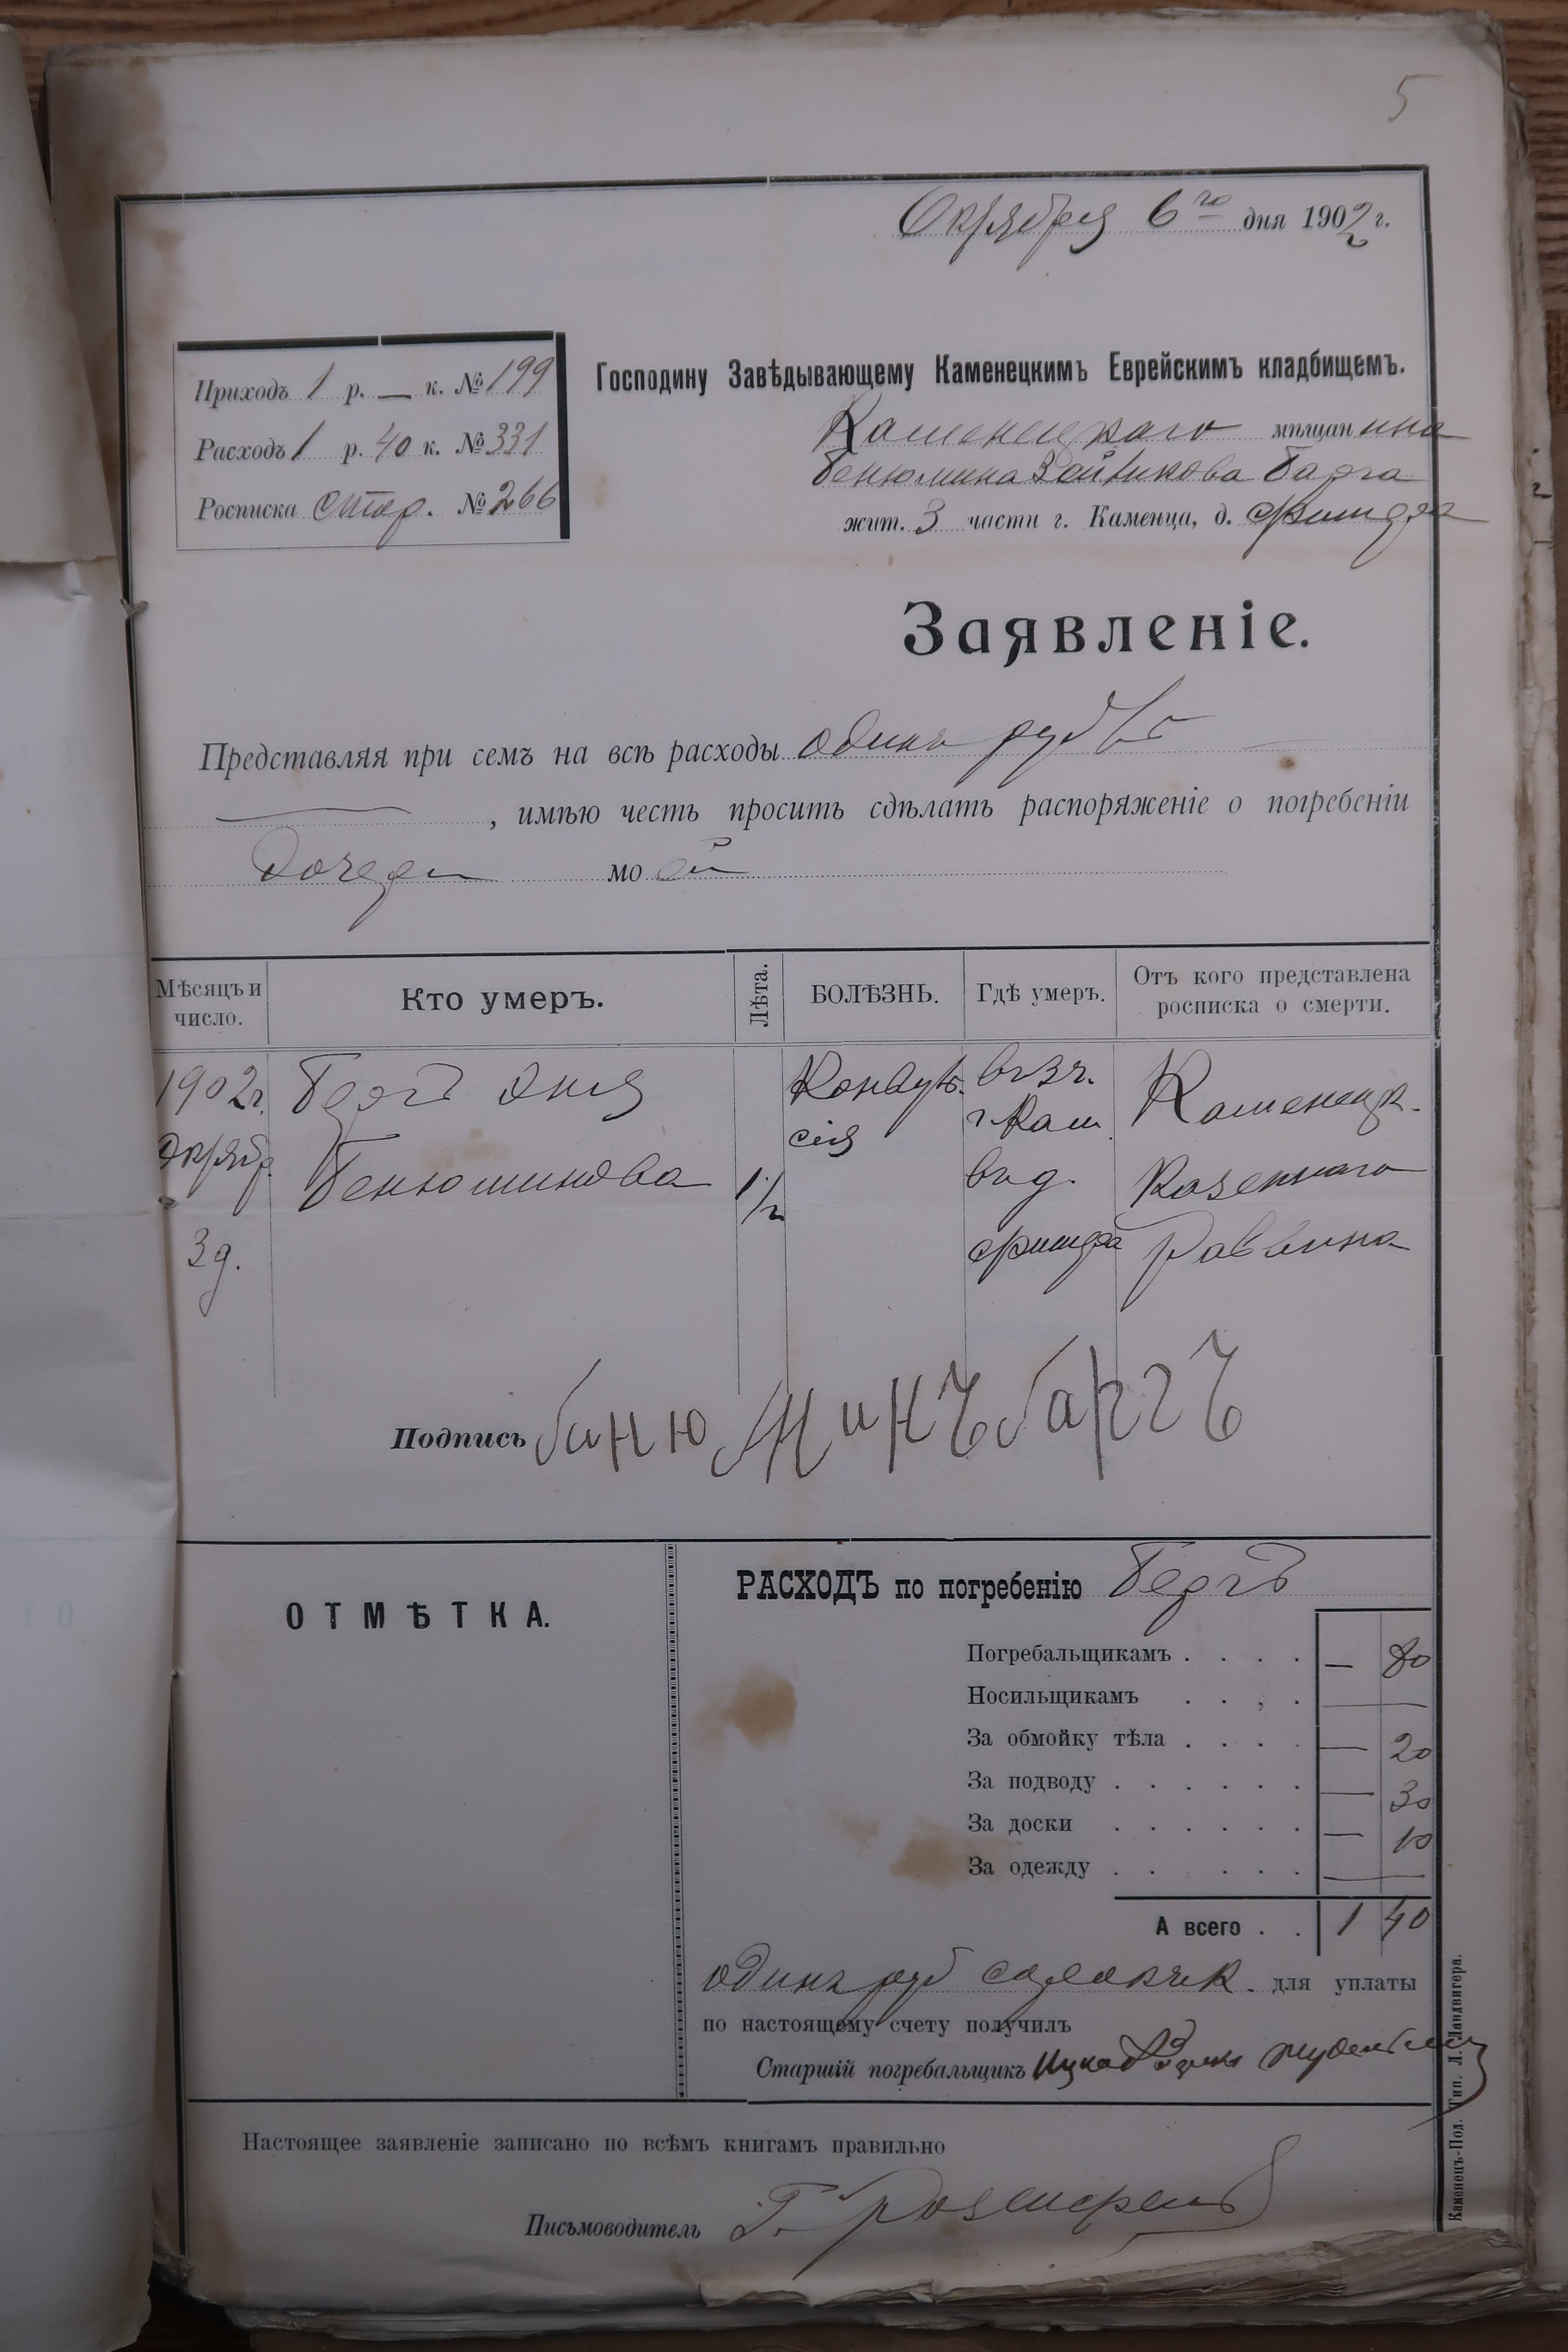 5
Октября 6го дня 1902 г.
Приходъ 1 р. — к. № 199
Расходъ 1 р. 40 к. № 331
Росписка стор. № 266
Господину Завѣдывающему Каменецкимъ Еврейскимъ кладбищемъ.
Каменецкаго мѣщанина
Бенюмина Берга
жит. 3 части г. Каменца, д.
Заявленіе.
Представляя при семъ на всѣ расходы одинъ руб
, имѣю честь просить сдѣлать распоряженіе о погребеніи
дочери моей
Мѣсяцъ и число.
Кто умеръ.
Лѣта.
БОЛѢЗНЬ.
Гдѣ умеръ.
Отъ кого представлена росписка о смерти.
1902 г. Октяб. 3 д.
Бергъ Эня Бенюминова
1 1/2
Конвульсія
въ 3 ч. г. Кам. въ д.
Каменецк. Казеннаго Раввина
Подпись бинюминъ баргъ
ОТМѢТКА.
РАСХОДЪ по погребенію Бергъ
Погребальщикамъ . . . . — 80
Носильщикамъ . . , . —
За обмойку тѣла . . . . — 20
За подводу . . . . . . — 30
За доски . . . . . . — 10
За одежду . . . . . —
А всего . . 1 40
одинъ руб сорокъ к. для уплаты
по настоящему счету получилъ
Старшій погребальщикъ
Настоящее заявленіе записано по всѣмъ книгамъ правильно
Письмоводитель
Каменецъ-Под. Тип. Л. Ландвигера.